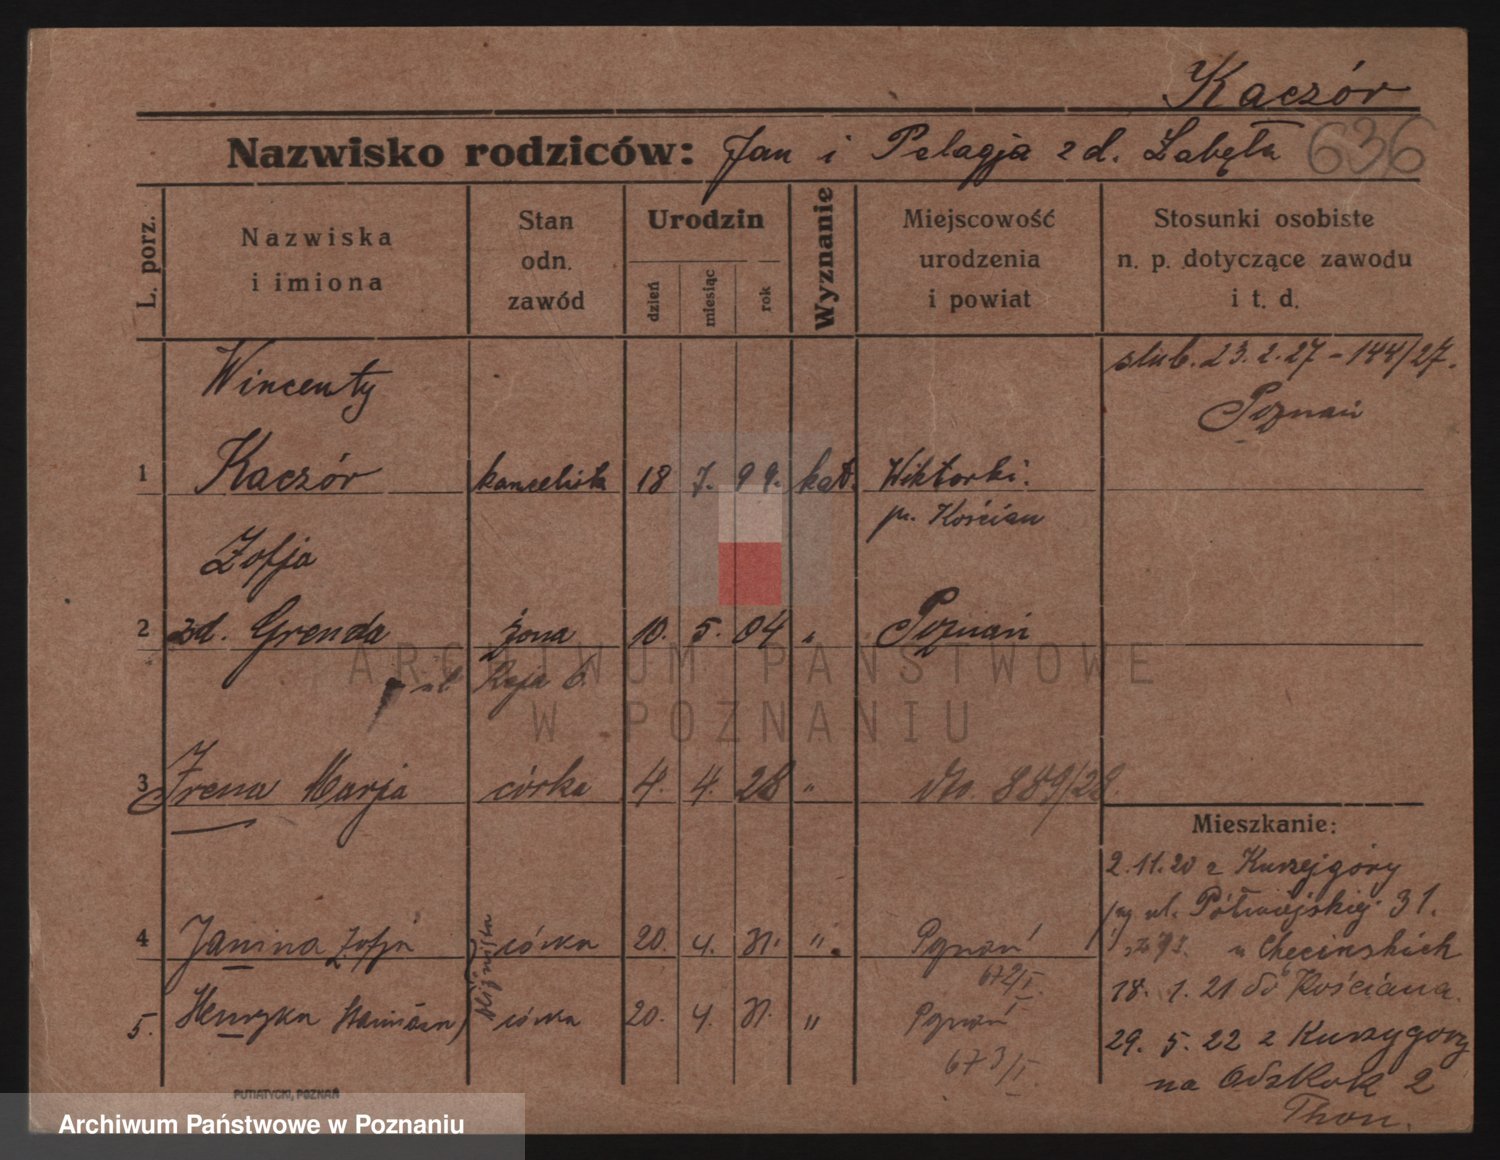 Kaczór
Nazwisko rodziców: Jan i Pelagja z d. Łabęta 636
L. porz.
Nazwiska i imiona
Stan odn. zawód
Urodzin
dzień miesiąc rok
Wyznanie
Miejscowość urodzenia i powiat
Stosunki osobiste n. p. dotyczące zawodu i t. d.
Wincenty
ślub. 23.2.27 - 144/27.
Poznań
1 Kaczór kancelista 18 7. 99. kat. Wiktorki.
pw. Kościan
Zofja
2 zd. Grenda żona 10. 5. 04 " Poznań
3 Irena Marja córka 4. 4. 28 " dto. 889/28.
Mieszkanie:
2.11.20 z Kurzejgóry
ul. Półwiejskiej 31.
u Chęcinskich
18. 1. 21 do Kościana.
29. 5. 22 z Kurzygóry
na Odskok 2
Thon.
4 Janina Zofja córka 20. 4. 31. " Poznań
672/I.
5. Henryka córka 20. 4. 31. " Poznań
673/I
bliźnięta
PUTIATYCKI, POZNAŃ
ARCHIWUM PAŃSTWOWE
W POZNANIU
Archiwum Państwowe w Poznaniu